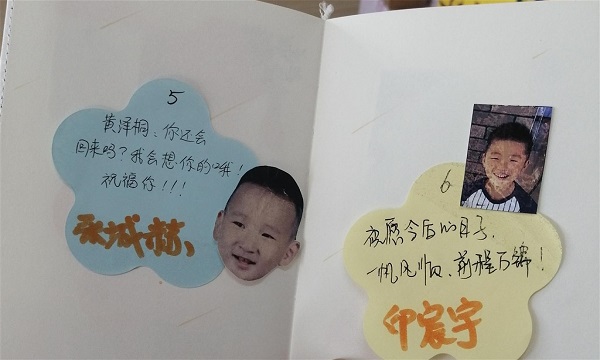 5
黄泽桐、你还会
回来吗？我会想你的哦！
祝福你！！！
张城赫
6
祝愿今后的日子、
一帆风顺、前程万锦！
印宸宇